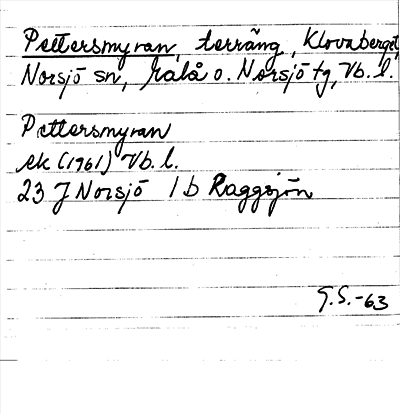 Pettersmyran, terräng, Klovaberget,
Norsjö sn, Malå o. Norsjö tg, Vb. l.
Pettersmyran
ek (1961) Vb. l.
23 J Norsjö 1 b Raggsjön
G.S.-63